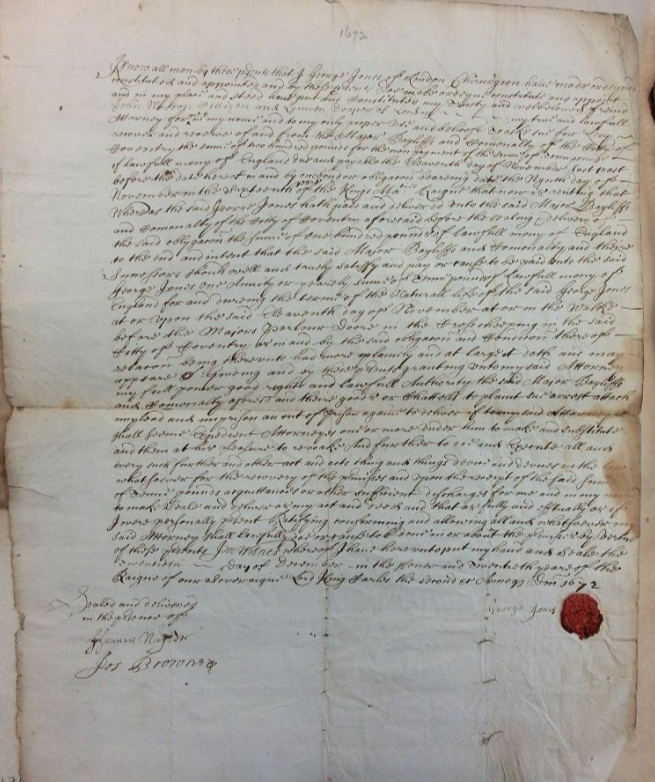 1672
Know all men by these presents that I George Jones of London Chirurgeon have made ordeyned
constituted and appointed and by these presents doe make ordeyne constitute and appoint
and in my place and stead have put and constituted my Trusty and welbeloved friend
John and of London my true and lawfull
Attorney for me in my name and to my only proper use and behoofe to aske sue for Levy
recover and receive of and from the Major Bayliffs and Comonalty of the Citty of
Coventry the sume of two hundred pounds for the non payment of the sume of Tenn pounds
of lawfull mony of England due and payable the Eleaventh day of November last past
before the date hereof in and by one bond or obligacon beareing date the day of
November in the sixteenth yeare of the Kings Maties Raigne that now is reciting that
Whereas the said George Jones hath paid and delivered unto the said Major Bayliffs
and Comonalty of the Citty of Coventry aforesaid before the sealing & delivery of
the said obligacon the sume of One hundred pounds of lawfull mony of England
to the end and intent that the said Major Bayliffs and Comonalty and there
Successors should well and truely satisfy and pay or cause to be paid unto the said
George Jones one Anuity or yearely sume of Tenn pounds of lawfull mony of
England for and dureing the terme of the Naturall life of the said George Jones
at or upon the said Eleaventh day of November at or in the
before the Majors Parlour Doore in the in the said
Citty of Coventry as in and by the said obligacon and Condicon thereof
relacon being thereunto had more plainely and at large it doth and may
appeare Giveing and by these presents granting unto my said Attorney
my full power good right and lawfull Authority the said Major Bayliffs
and Comonalty afores and there goods or Chattells to plaint sue arrest attach
implead and imprison and out of prison againe to deliver if to my said Attorney
shall seeme Expedient Attorneyes one or more under him to make and substitute
and them at his pleasure to revoake And further to doe and Execute all and
every such further and other act and acts thing and things device and devices in the
whatsoever for the recovery of the premises and upon the receipt of the said sume
of Tenn pounds acquittances or other sufficient discharges for me and in my name
to make seale and deliver as my act and deed and that as fully and effectually as if
I were personally present Ratifying confirming and allowing all and whatsoever my
said Attorney shall lawfully doe or cause to be done in or about the premises by vertue
of these presents In Witnes whereof I have hereunto put my hand and seale the
Twentieth day of December in the Fower and Twentieth yeare of the
Raigne of our Soveraigne Lord King Charles the second Dm 1672
Sealed and delivered
in the presence of
George Jones
Jos Browne